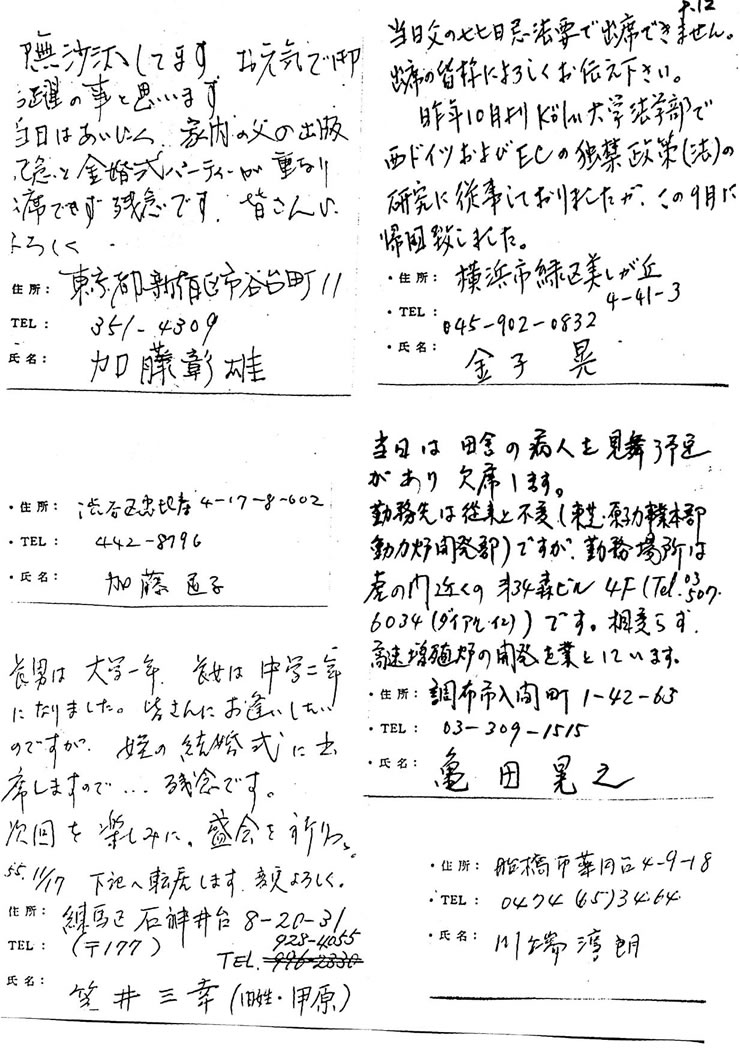 P.12
無沙汰してます お元気で御
活躍の事と思います
当日はあいにく、家内の父の出版
記念と金婚式パーティーが重なり
席できず残念です。皆さんに
よろしく
住所: 東京都新宿区市谷台町11
TEL: 351-4309
氏名: 加藤彰雄
当日父の七七日忌法要で出席できません。
出席の皆様によろしくお伝え下さい。
昨年10月よりKöln大学法学部で
西ドイツおよびECの独禁政策(法)の
研究に従事しておりましたが、この9月に
帰国致しました。
・住所: 横浜市緑区美しが丘
4-41-3
・TEL: 045-902-0832
・氏名: 金子 晃
・住所: 渋谷区恵比寿 4-17-8-602
・TEL: 442-8796
・氏名: 加藤
当日は田舎の病人を見舞う予定
があり欠席します。
勤務先は従来と不変(東芝・原子力事業本部
動力炉開発部)ですが、勤務場所は
虎の門近くの第34森ビル 4F(Tel.03
507-
6034(ダイアル・イン))です。相変らず、
高速増殖炉の開発を業としています。
・住所: 調布市入間町 1-42-63
・TEL: 03-309-1515
・氏名: 亀田晃之
長男は大学一年、長女は中学二年
になりました。皆さんにお逢いしたい
のですが、姪の結婚式に出
席しますので…残念です。
次回を楽しみに。盛会を祈る。
55.11/17 下記へ転居します よろしく。
住所: 練馬区石神井台 8-20-31
TEL: (〒177) 928-4055
TEL. 996-2330
氏名: 笠井三幸(旧姓・甲原)
・住所: 船橋市薬円台4-9-18
・TEL: 0474 (65) 3464
・氏名: 川端淳朗